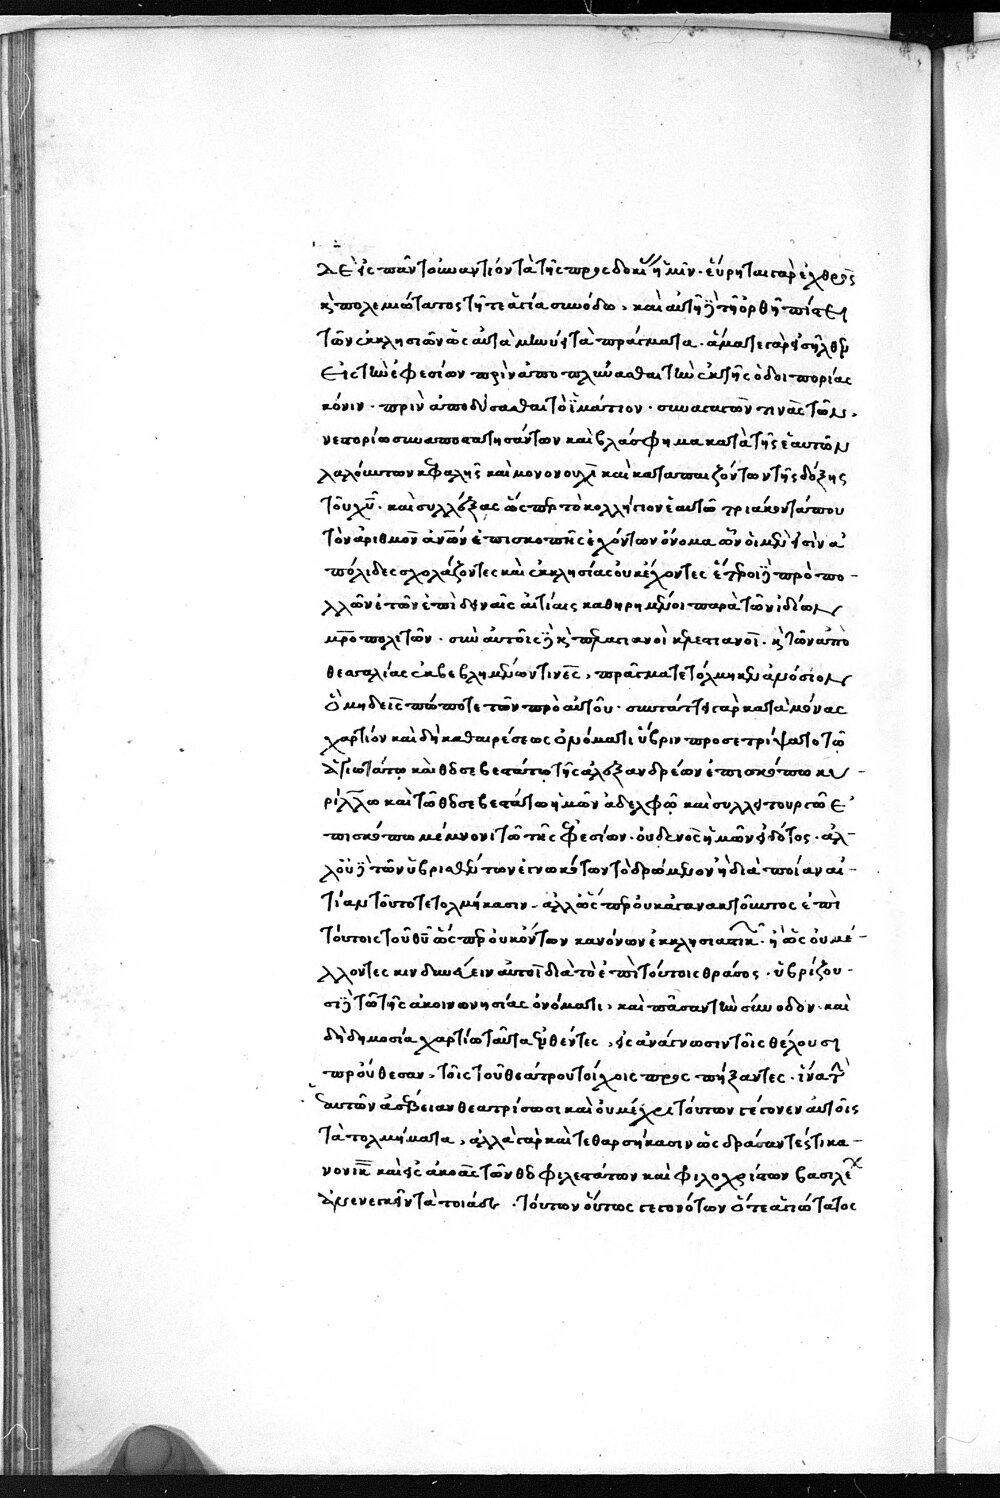 δὲ εἰς πᾶν τοὐναντίον τὰ τῆς προσδοκίας ἡμῖν· εὕρηται γὰρ ἐχθρὸς
κ̀ πολεμιώτατος τῆ τε ἁγία συνόδω, καὶ αὐτῆ δὲ τῆ ὀρθῆ πίστει
τῶν ἐκκλησιῶν ὡς αὐτὰ μηνύει τὰ πράγματα. ἅμα τε γὰρ εἰσῆλθεν
εἰς τὴν ἐφεσίων πρὶν ἀποπλύνασθαι τὴν ἐκ τῆς ὁδοιπορίας
κόνιν· πρὶν ἀποδύσασθαι τὸ ἱμάτιον· συναγαγὼν τινὰς τῶν
νεστορίω συναποστατησάντων καὶ βλάσφημα κατὰ τῆς ἑαυτῶν
λαλούντων κεφαλῆς καὶ μονονουχὶ καὶ καταπαιζόντων τῆς δόξης
τοῦ χυ̅· καὶ συλλέξας ὥσπερ τὸ κολλήγιον ἑαυτῶ τριάκοντά που
τὸν ἀριθμὸν ἀν̅ων ἐπισκοπῆς ἐχόντων ὄνομα ὧν οἱ μὲν εἰσὶν ἀ
πόλιδες σχολάζοντες καὶ ἐκκλησίας οὐκ ἔχοντες ἕτεροι δὲ πρὸ πο-
λλῶν ἐτῶν ἐπὶ δειναῖς αἰτίαις καθηρημένοι παρὰ τῶν ἰδίων
μρ̅οπολιτῶν· σὺν αὐτοῖς δὲ κ̀ πελαγιανοὶ κελεστιανοὶ· κ̀ τῶν ἀπὸ
θεσσαλίας ἐκβεβλημένων τινὲς, πρᾶγμα τετόλμηκεν ἀνόσιον
ὃ μηδεὶς πώποτε τῶν πρὸ αὐτοῦ· συντάττει γὰρ κατὰ μόνας
χαρτίον καὶ δὴ καθαιρέσεως ὀνόματι ὕβριν προσετρίψατο τῶ
ἁγιωτάτω καὶ θεοσεβεστάτω τῆς ἀλεξανδρέων ἐπισκόπω κυ-
ρίλλω καὶ τῶ θεοσεβεστάτω ἡμῶν ἀδελφῶ καὶ συλλειτουργῶ ἐ
πισκόπω μέμνονι τῶ τῆς ἐφεσίων· οὐδενὸς ἡμῶν εἰδότος· ἀλ-
λ' οὐδὲ τῶν ὑβρισθέντων ἐγνωκότων τὸ δρώμενον ἢ διὰ ποίαν αἰ-
τίαν τοῦτο τετολμήκασιν. ἀλλ' ὥσπερ οὐκ ἀγανακτοῦντος ἐπὶ
τούτοις τοῦ θυ̅ ὥσπερ οὐκ ὄντων κανόνων ἐκκλησιαστικῶν· ἢ ὡς οὐ μέ-
λλοντες κινδυνεύειν αὐτοὶ διὰ τὸ ἐπὶ τούτοις θράσος· ὑβρίζου-
σι δὲ τῶ τῆς ἀκοινωνησίας ὀνόματι, καὶ πᾶσαν τὴν σύνοδον· καὶ
δὴ δημοσία χαρτίω ταῦτα ἐνθέντες, εἰς ἀνάγνωσιν τοῖς θέλουσι
προύθεσαν, τοῖς τοῦ θεάτρου τοίχοις προσπήξαντες· ἵνα τὴν
ἑαυτῶν ἀσέβειαν θεατρίσωσι καὶ οὐ μέχρι τούτων γέγονεν αὐτοῖς
τὰ τολμήματα, ἀλλὰ γὰρ καὶ τεθαρσήκασιν ὡς δράσαντές τι κα-
νονικὸν καὶ εἰς ἀκοὰς τῶν θεοφιλεστάτων καὶ φιλοχρίστων βασιλέων
ἀνενεγκεῖν τὰ τοιάδε. τούτων οὕτως γεγονότων ὅ τε ἁγιώτατος